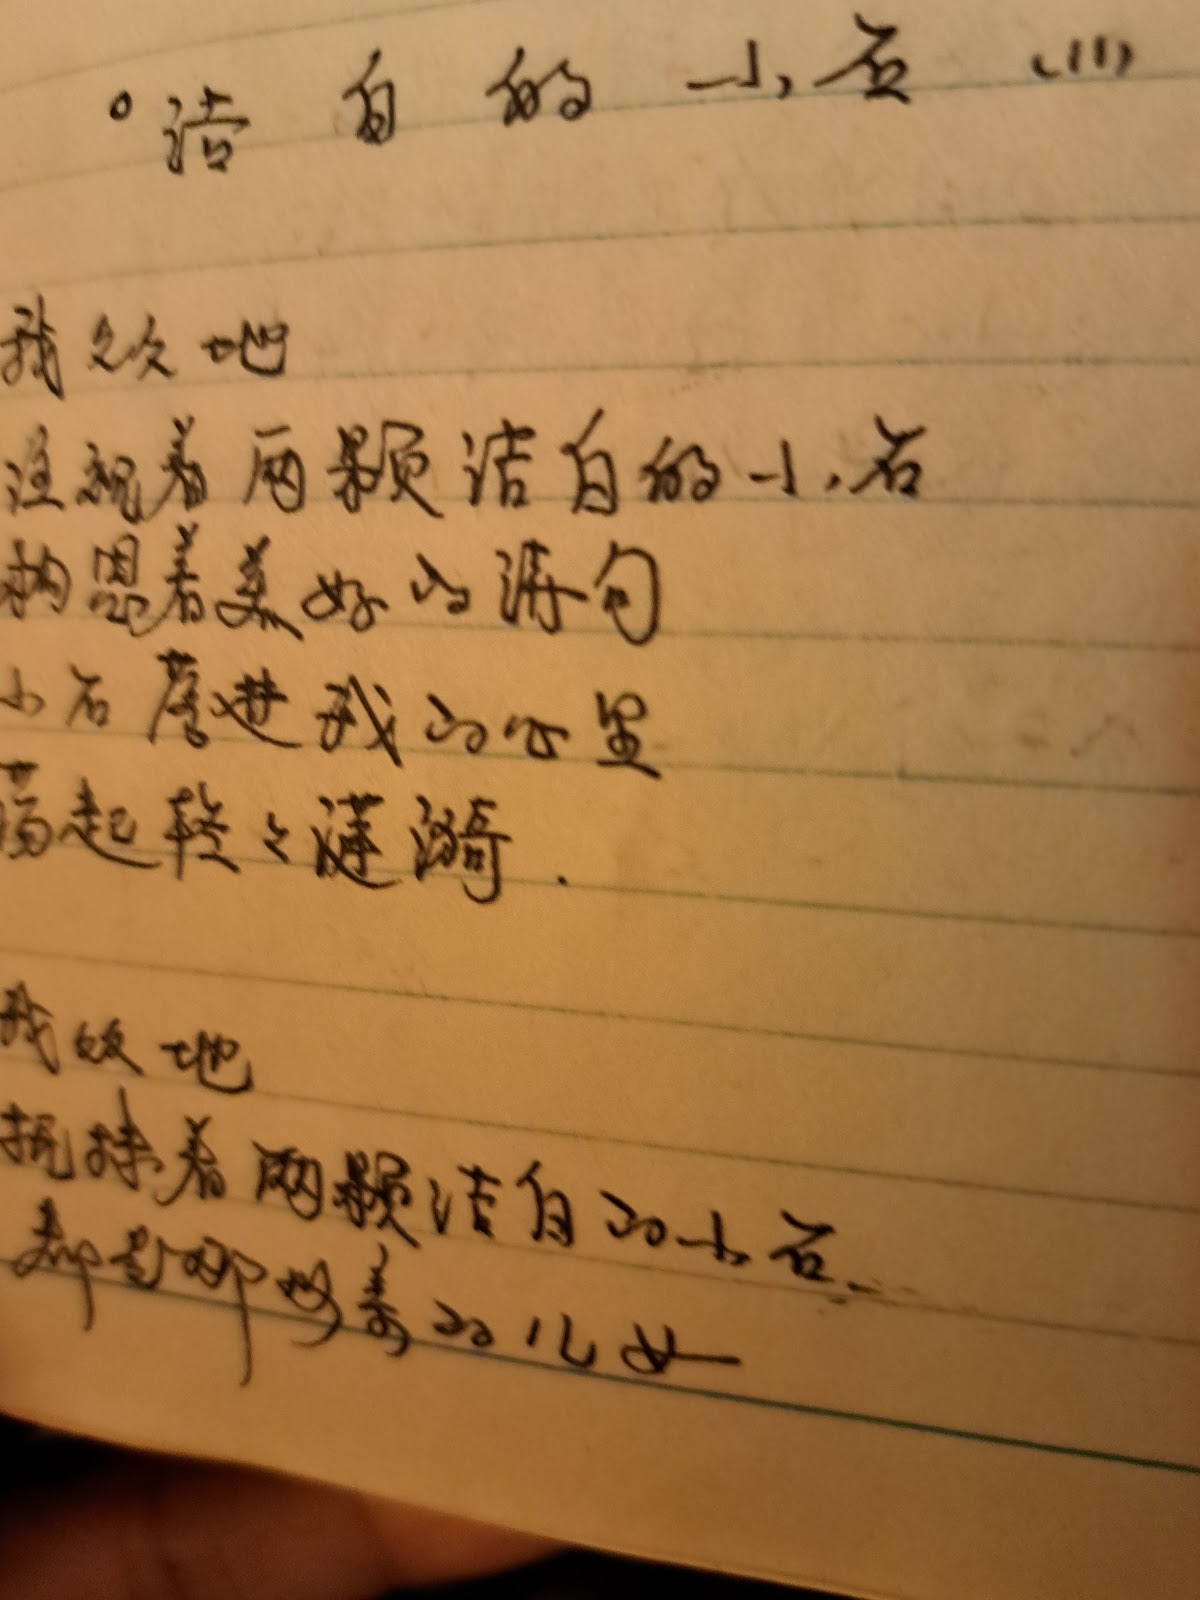 。洁白的小石(11)
我久久地
注视着两颗洁白的小石
构思着美好的诗句
小石落进我的心里
荡起轻々涟漪.
我久久地
抚抹着两颗洁白的小石
都是那
的儿女